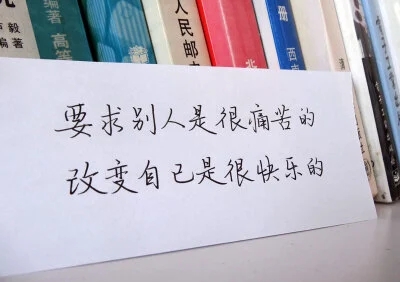 编著
高等
人民邮
册
西南
北
要求别人是很痛苦的
改变自己是很快乐的